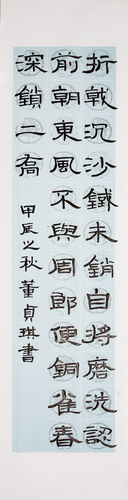 折戟沉沙鐵未銷自將磨洗認
前朝東風不與周郎便銅雀春
深鎖二喬
甲辰之秋董貞琪書